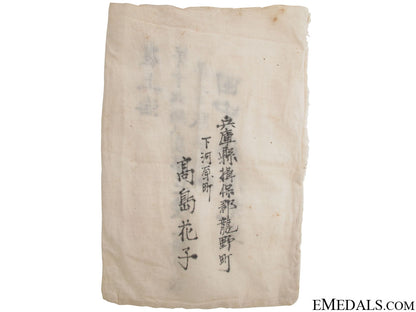 兵庫縣揖保郡龍野町
下河原町
髙島花子
EMEDALS.COM